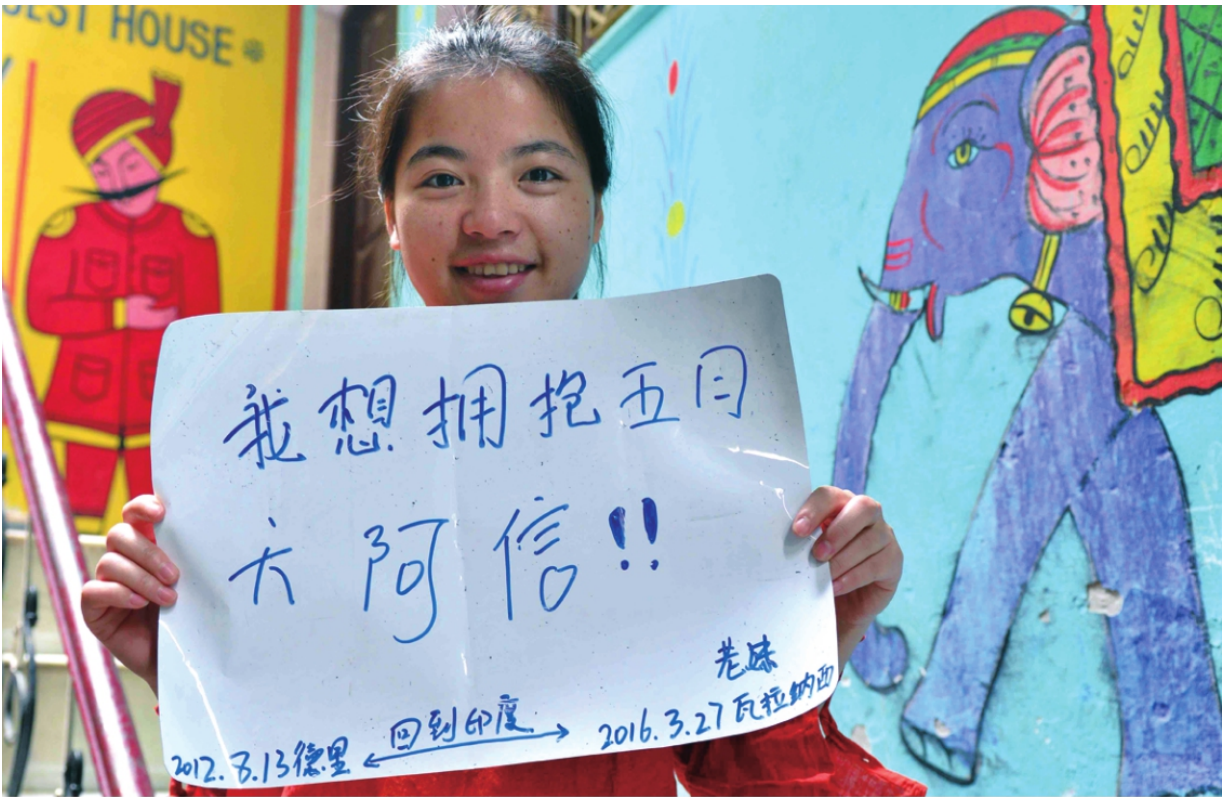 UEST HOUSE
我想拥抱五月
天阿信!!
老妹
2012.8.13德里 回到印度 2016.3.27瓦拉纳西